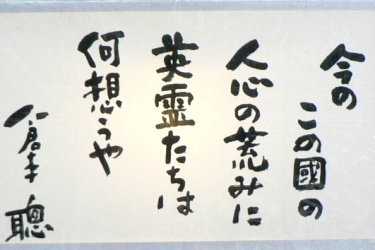 今の
この國の
人心の荒みに
英霊たちは
何想うや
倉本聰